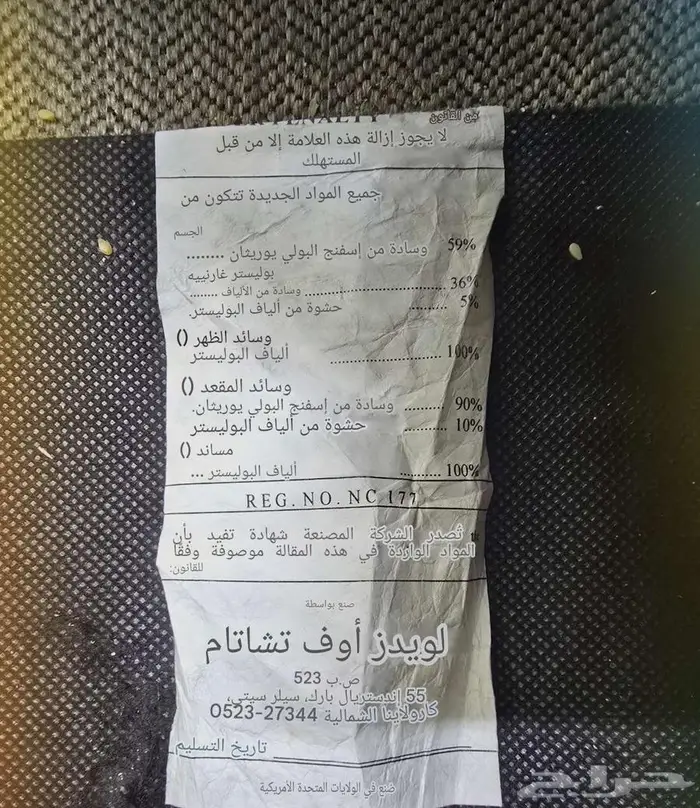 PENALTY
من القانون
لا يجوز إزالة هذه العلامة إلا من قبل
المستهلك
جميع المواد الجديدة تتكون من
الجسم
وسادة من إسفنج البولي يوريثان ........ 59%
بوليستر غارنييه
وسادة من الألياف ........ 36%
حشوة من ألياف البوليستر. ........ 5%
وسائد الظهر ()
ألياف البوليستر ........ 100%
وسائد المقعد ()
وسادة من إسفنج البولي يوريثان. ........ 90%
حشوة من ألياف البوليستر ........ 10%
مساند ()
ألياف البوليستر ... ........ 100%
REG. NO. NC 177
تُصدر الشركة المصنعة شهادة تفيد بأن
المواد الواردة في هذه المقالة موصوفة وفقًا
للقانون:
صنع بواسطة
لويدز أوف تشاتام
ص.ب 523
55 إندستريال بارك، سيلر سيتي،
كارولاينا الشمالية 27344-0523
تاريخ التسليم
صُنع في الولايات المتحدة الأمريكية
حراج